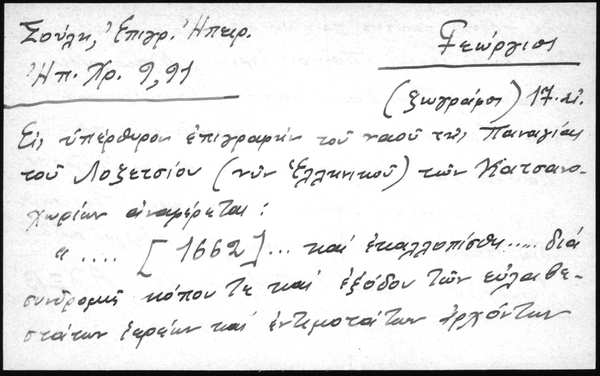 Σούλη, Ἐπιγρ. Ἠπειρ.
Ἠπ. Χρ. 9, 91
Γεώργιος
(ζωγράφος) 17. αἰ.
Εἰς ὑπέρθυρον ἐπιγραφὴν τοῦ ναοῦ τῆς Παναγίας
τοῦ Λοζετσίου (νῦν Ἑλληνικοῦ) τῶν Κατσανο-
χωρίων ἀναφέρεται:
« .... [1662]... καὶ ἐκαλλοπίσθη..... διὰ
συνδρομῆς κόπου τε καὶ ἐξόδου τῶν εὐλαβε-
στάτων ἱερέων καὶ ἐντιμοτάτων ἀρχόντων